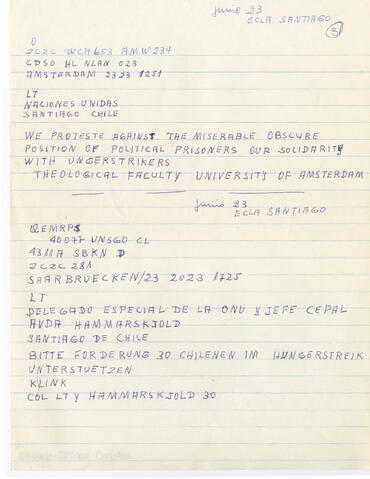 junio 23
ECLA SANTIAGO
3
0
ZCZC WCH653 AMW234
CDSO HL NLAN 023
AMSTERDAM 23 23 1251
LT
NACIONES UNIDAS
SANTIAGO CHILE
WE PROTESTE AGAINST THE MISERABLE OBSCURE
POSITION OF POLITICAL PRISONERS OUR SOLIDARITY
WITH UNGERSTRIKERS
THEOLOGICAL FACULTY UNIVERSITY OF AMSTERDAM
junio 23
ECLA SANTIAGO
QEMRPS
40077 UNSGO CL
4311A SBKN D
ZCZC 281
SAARBRUECKEN/23 2023 1725
LT
DELEGADO ESPECIAL DE LA ONU Y JEFE CEPAL
AVDA HAMMARSKJOLD
SANTIAGO DE CHILE
BITTE FORDERUNG 30 CHILENEN IM HUNGERSTREIK
UNTERSTUETZEN
KLINK
COL LTY HAMMARSKJOLD 30